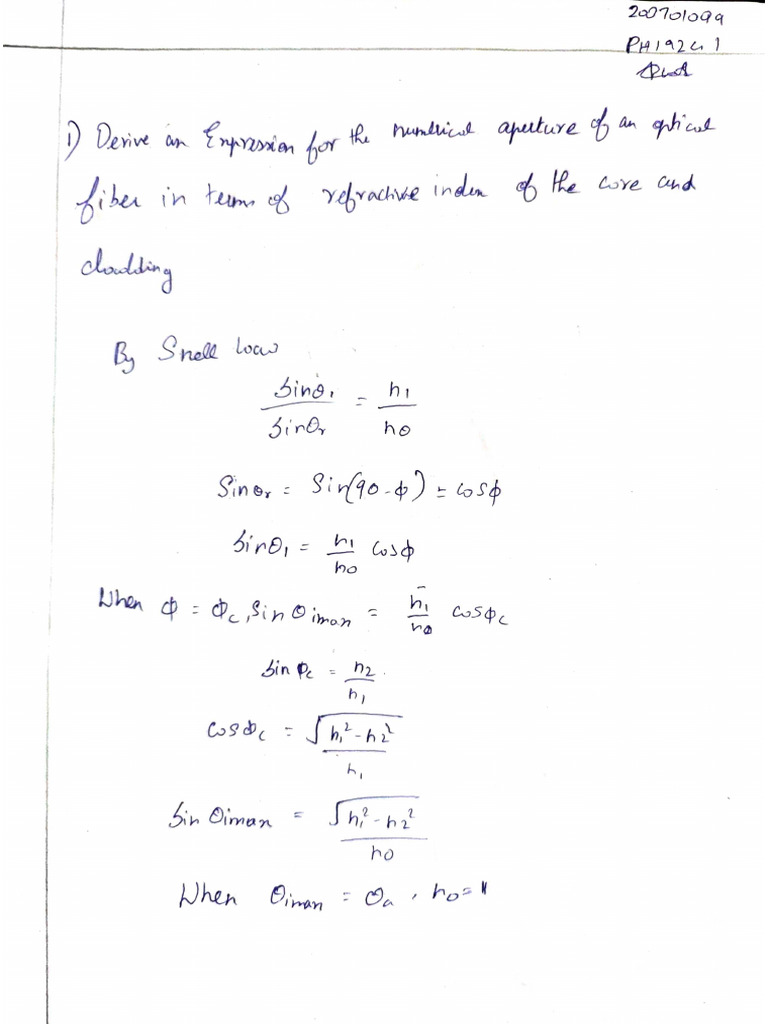 200701099
PH19241
1) Derive an Expression for the numerical aperture of an optical
fiber in terms of refractive index of the core and
cladding
By Snell law
sinθ₁ / sinθr = n1 / n0
Sinθr = Sin(90-ϕ) = cosϕ
sinθ₁ = n1/n0 cosϕ
When ϕ = ϕc, sin θiman = n1/n0 cosϕc
sin ϕc = n2/n1
cosϕc = √n₁²-n2² / n1
Sin θiman = √n₁²-n2² / n0
When θiman = θa , n0=1